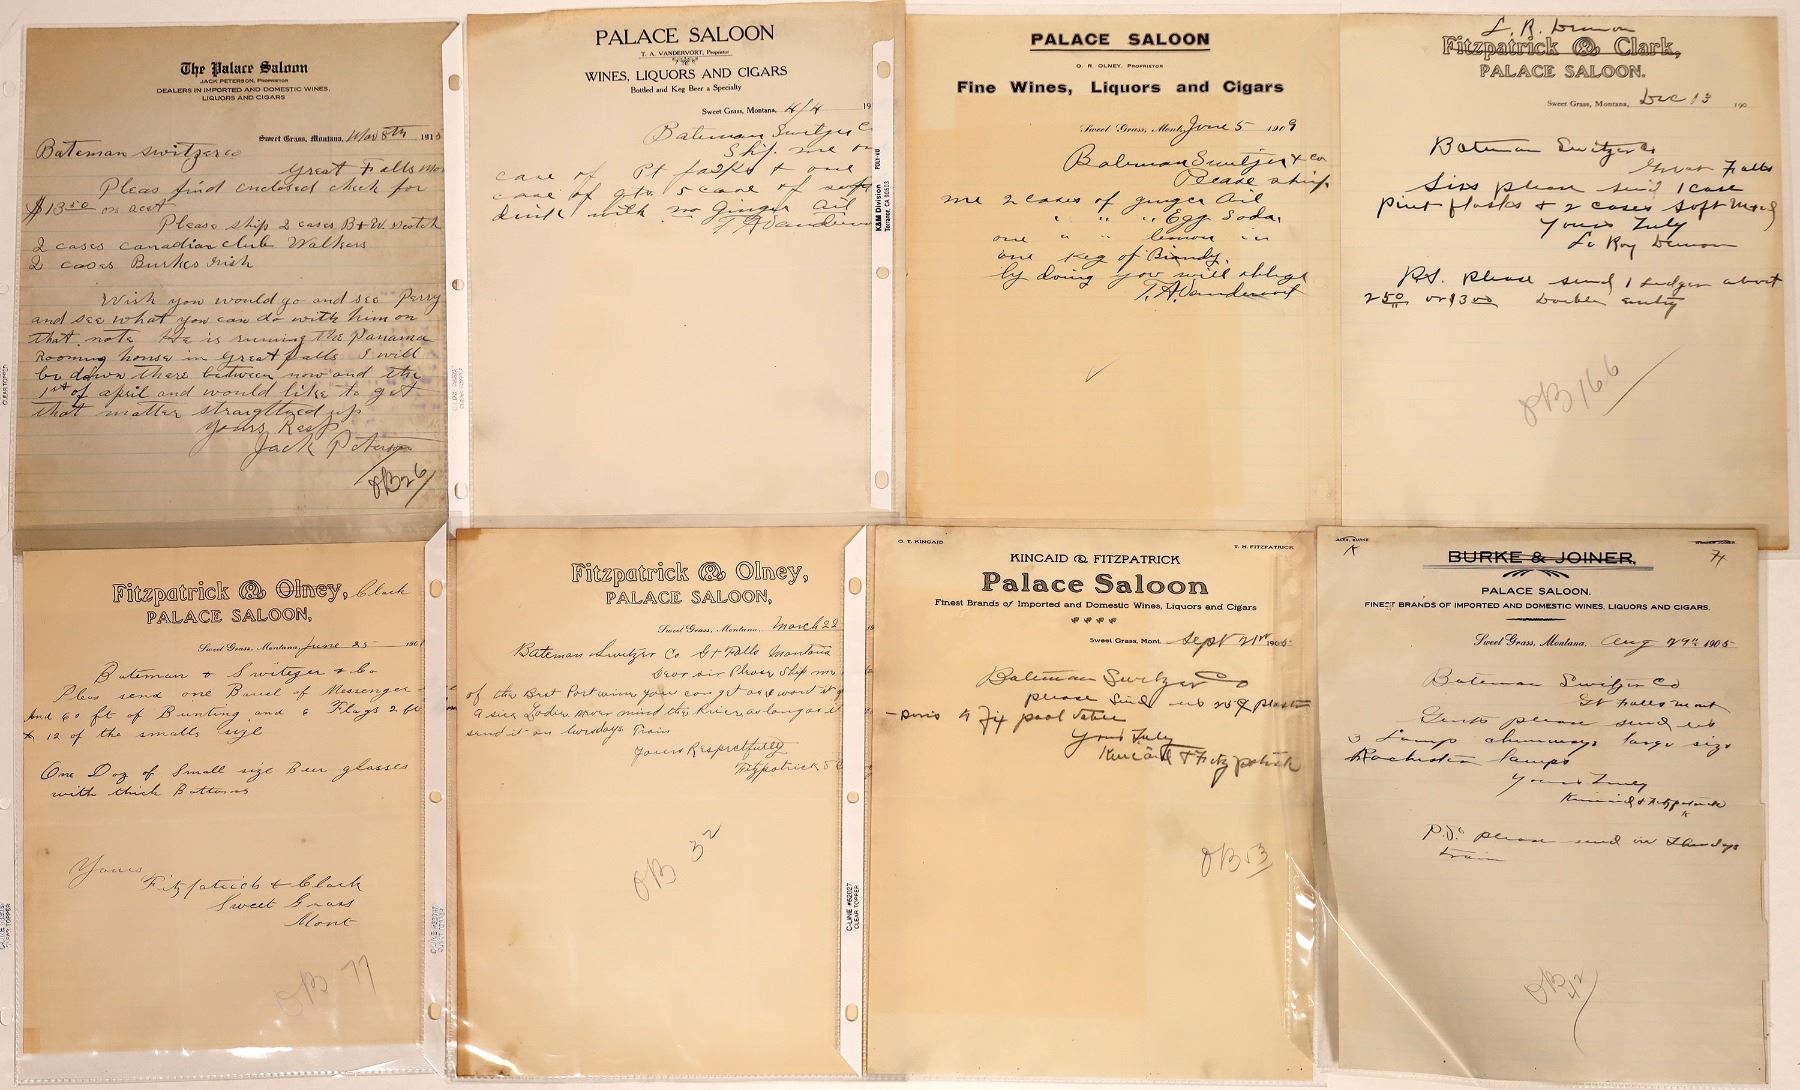 The Palace Saloon
JACK PETERSON, PROPRIETOR
DEALERS IN IMPORTED AND DOMESTIC WINES,
LIQUORS AND CIGARS
Sweet Grass, Montana, Mar 8th 191
Bateman Switzer co
Great Falls
Pleas find enclosed check for
$13 50 on acct
Please ship 2 cases B&W
2 cases canadian club Walkers
2 cases Burkes Irish
Wish you would go and see Perry
and see what you can do with him on
that note He is running the Panama
Rooming house in Great falls I will
be down there between now and the
1st of april and would like to get
that matter up
yours Resp
Jack Peterson
OB26
PALACE SALOON
T. A. VANDERVORT, Proprietor
WINES, LIQUORS AND CIGARS
Bottled and Keg Beer a Specialty
Sweet Grass, Montana, 4/4 19
Bateman Switzer Co
Ship me
case of Pt & one
case of qts 5 case of
drink with no Ginger ail
T A
K&M Division
Torrance, CA 90503
PALACE SALOON
O. R. OLNEY, PROPRIETOR
Fine Wines, Liquors and Cigars
Sweet Grass, Mont, June 5 1909
Bateman Switzer & co
Please ship
me 2 cases of ginger ail
" " " Egg Soda
one " " lemon
one keg of Brandy.
by doing you will oblige
T. A. Vandervort
L. R. Demon
Fitzpatrick & Clark,
PALACE SALOON.
Sweet Grass, Montana, Dec 13 190
Bateman Switzer Co
Great Falls
Sirs please send 1 case
pint flasks & 2 cases soft
yours Truly
Le Roy Demon
P.S. please send 1 Ledger about
2 50 or $3 00 Double entry
OB166
Fitzpatrick & Olney, Clark
PALACE SALOON,
Sweet Grass, Montana, June 25 190
Bateman & Switzer & Co
Pleas send one Barrel of Messenger
and 60 ft of Bunting and 6 Flags 2 ft
& 12 of the smalls size
One Doz of Small size Beer glasses
with thick Bottoms
Yours
Fitzpatrick & Clark
Sweet Grass
Mont
OB 77
Fitzpatrick & Olney,
PALACE SALOON,
Sweet Grass, Montana, March 22
Bateman Switzer Co Gt Falls Montana
Dear sir Please Ship me
of the Best Port wine you can get as I want it
a sick Ladie never mind the Price as long as
send it on tuesdays Train
Yours Respectfully
Fitzpatrick
OB 32
C-LINE #62027
CLEAR TOPPER
O. T. KINCAID
T. H. FITZPATRICK
KINCAID & FITZPATRICK
Palace Saloon
Finest Brands of Imported and Domestic Wines, Liquors and Cigars
Sweet Grass, Mont. Sept 21 190
Bateman Switzer Co
please send us
to fix pool table
Yours Truly
Kincaid & Fitzpatrick
OB53
ALEX. BURKE
BURKE & JOINER,
PALACE SALOON.
FINEST BRANDS OF IMPORTED AND DOMESTIC WINES, LIQUORS AND CIGARS.
Sweet Grass, Montana, Aug 29th 1905
Bateman Switzer Co
Gt Falls Mont
Gents please send us
3 Lamp chimneys large size
Rochester lamps
Yours Truly
Kincaid & Fitzpatrick
P.S. please send on
train
OB42